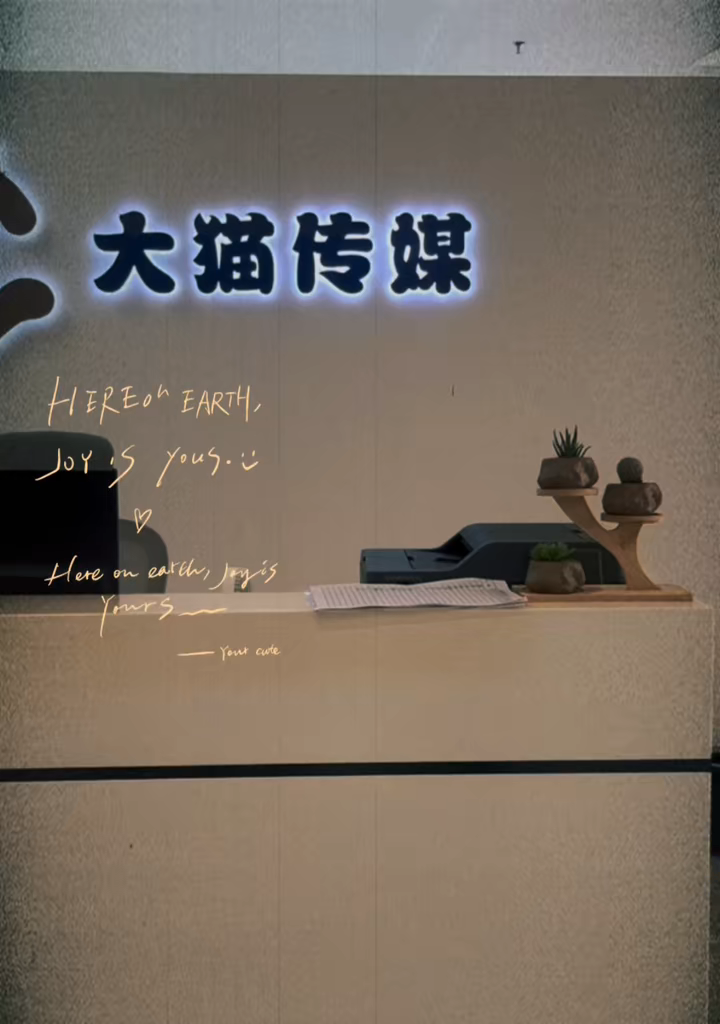 大猫传媒
HERE on EARTH,
JOY iS yous.
Here on earth, Joy is
Yours
Your cute